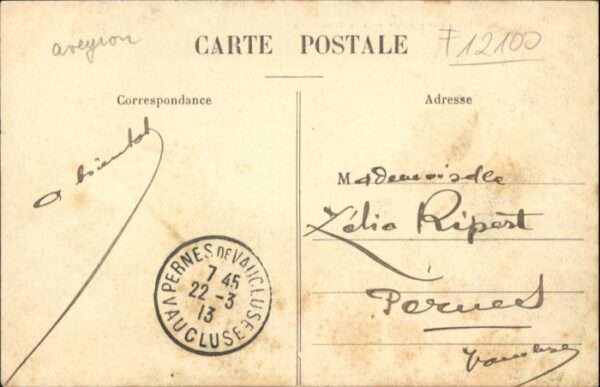 aveyron
CARTE POSTALE
F12100
Correspondance
Adresse
A bientot
Mademoiselle
Zélia Ripert
Pernes
Vaucluse
PERNES DE VAUCLUSE
7 45
22 - 3
13
VAUCLUSE